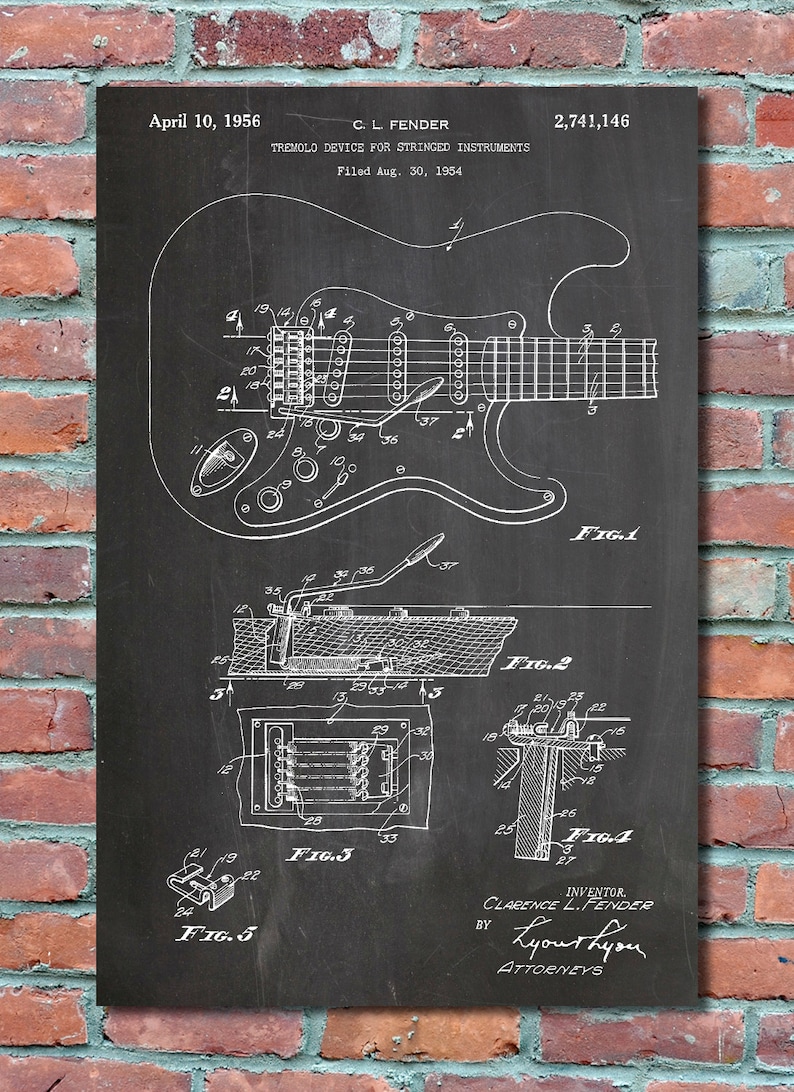 April 10, 1956 C. L. FENDER 2,741,146
TREMOLO DEVICE FOR STRINGED INSTRUMENTS
Filed Aug. 30, 1954
1
19 14 16
4 4 4 5 6 3 2
17
20
18 23
2 16 37 3
24 7 34 36 2
11 8 10
9
FIG.1
37
14 34 36
35 22
12
15 30
26 FIG.2
3 28 29 33 14 3
13
29 32
12 30
28
33
FIG.3
21 23
17 20 19 22
18 16
15
14 12
26
25 FIG.4
3
27
21 19
22
24
FIG.5
INVENTOR.
CLARENCE L. FENDER
BY Lyon & Lyon
ATTORNEYS